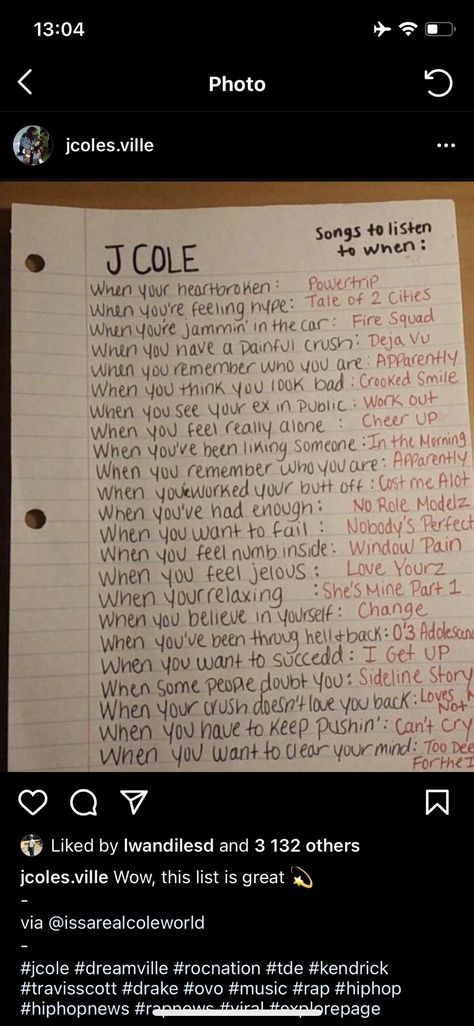 13:04
Photo
jcoles.ville
Songs to listen
to when:
J COLE
When your heartbroken: Powertrip
When you're feeling hype: Tale of 2 Cities
When you're jammin' in the car: Fire Squad
When you have a painful crush: Deja Vu
When you remember who you are: Apparently
When you think you look bad: Crooked Smile
When you see your ex in public: Work out
When you feel really alone: Cheer Up
When you've been liking someone: In the Morning
When you remember who you are: Apparently
When you've worked your butt off: Cost me Alot
When you've had enough: No Role Modelz
When you want to fail: Nobody's Perfect
When you feel numb inside: Window Pain
When you feel jelous: Love Yourz
When your relaxing: She's Mine Part 1
When you believe in yourself: Change
When you've been throug hell + back: 0'3 Adolescen
When you want to succedd: I Get UP
When some people doubt you: Sideline Story
When your crush doesn't love you back: Loves
Not
When you have to keep pushin': Can't Cry
When you want to clear your mind: Too Dee
For the I
Liked by lwandilesd and 3 132 others
jcoles.ville Wow, this list is great 💫
-
via @issarealcoleworld
-
#jcole #dreamville #rocnation #tde #kendrick
#travisscott #drake #ovo #music #rap #hiphop
#hiphopnews #rapnews #viral #explorepage